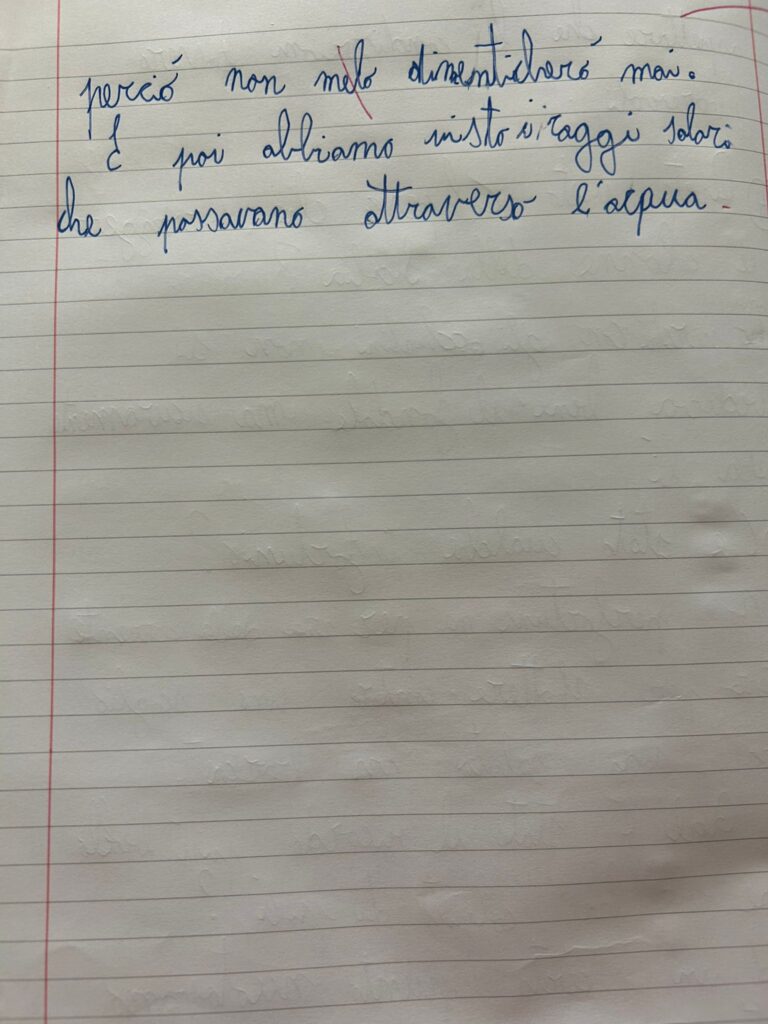 perció non melo dimenticheró mai.
E poi abbiamo visto i raggi solari
che passavano attraverso l'acqua.